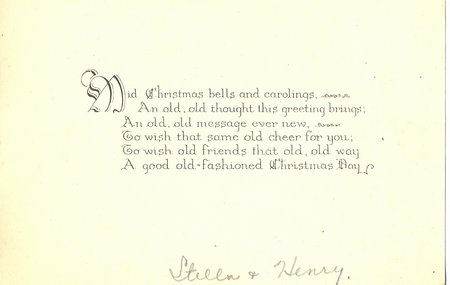 Mid Christmas bells and carolings,
An old, old thought this greeting brings;
An old, old message ever new,
To wish that same old cheer for you;
To wish old friends that old, old way
A good old-fashioned Christmas Day
Stella & Henry.